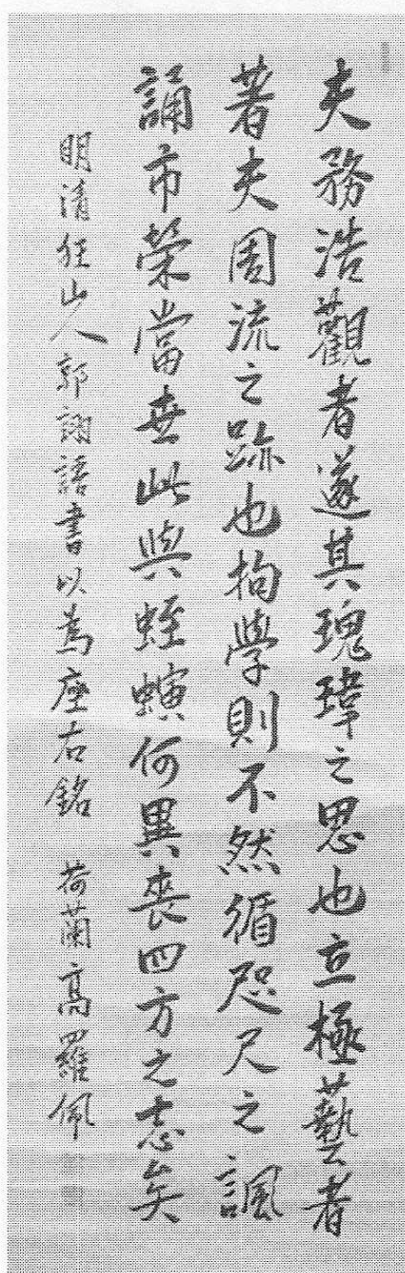 夫務浩觀者遂其瑰瑋之思也立極藝者
著夫周流之跡也拘學則不然循咫尺之諷
誦市榮當世此與蛭螾何異喪四方之志矣
明清狂山人郭詡語書以為座右銘 荷蘭高羅佩